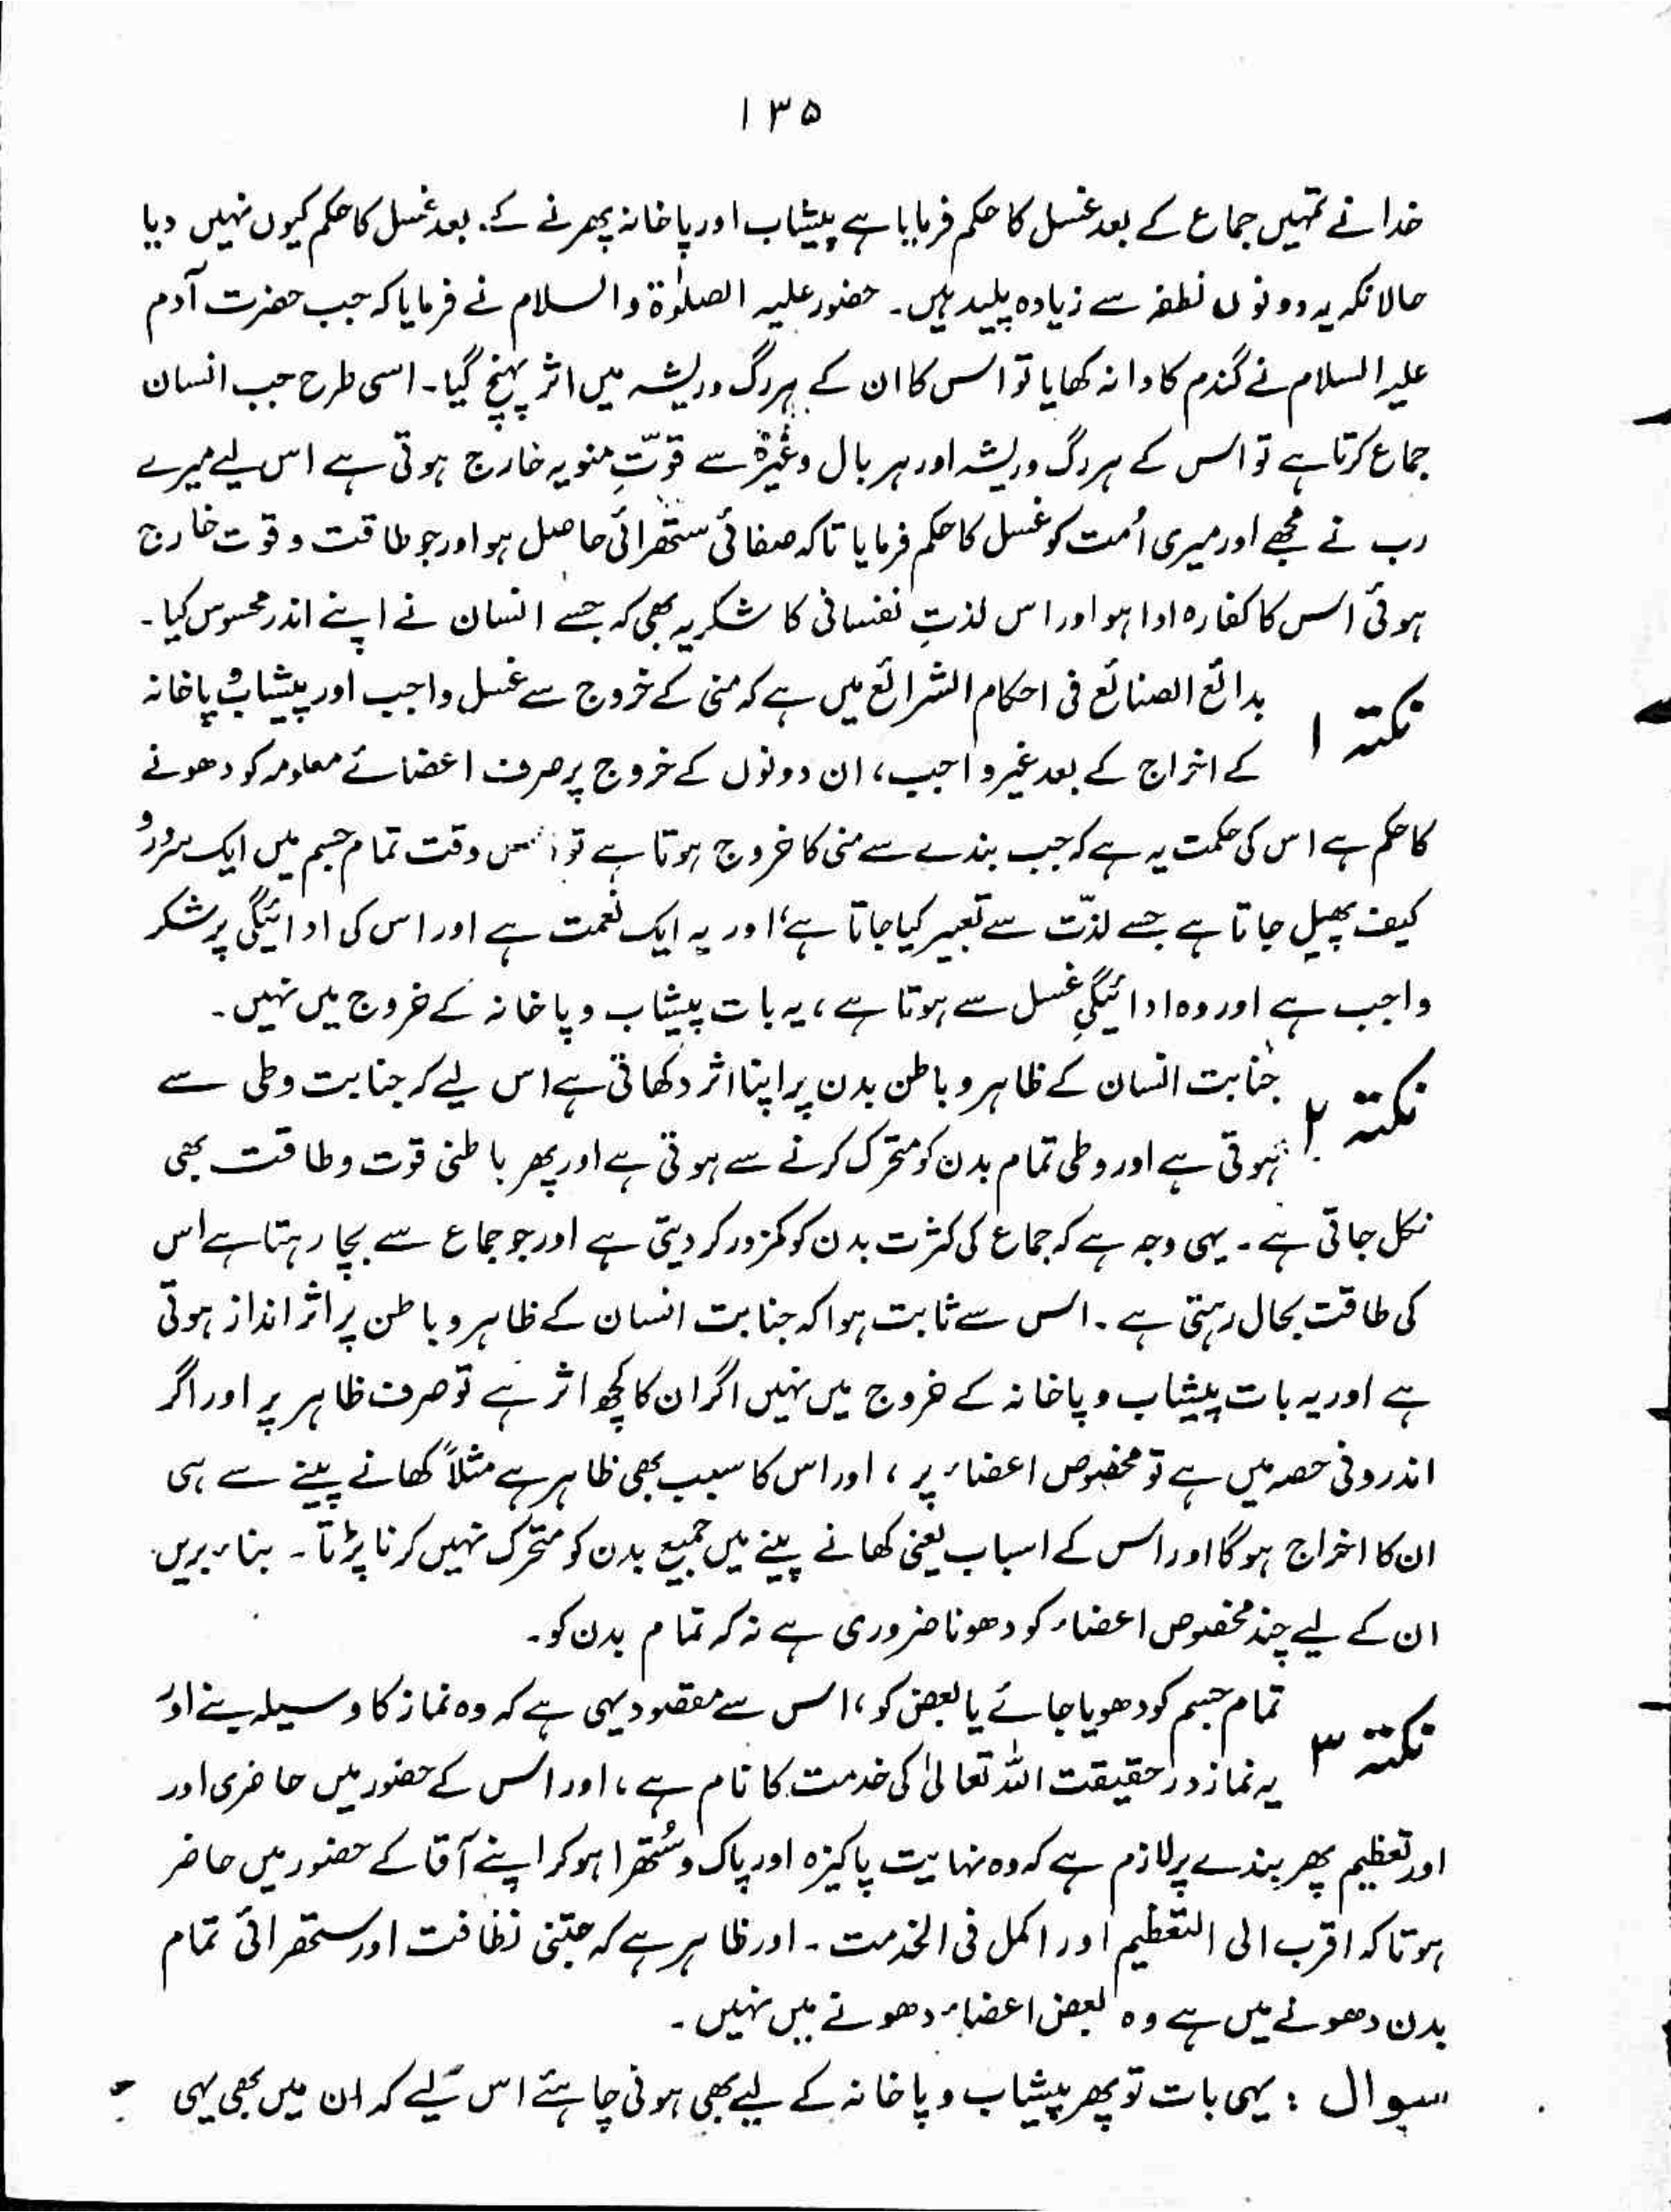 ۱۳۵
خدا نے تمہیں جماع کے بعد غسل کا حکم فرمایا ہے پیشاب اور پاخانہ پھرنے کے بعد غسل کا حکم کیوں نہیں دیا
حالانکہ یہ دونوں نطفہ سے زیادہ پلید ہیں۔ حضور علیہ الصلوٰۃ والسلام نے فرمایا کہ جب حضرت آدم
علیہ السلام نے گندم کا دانہ کھایا تو اس کا ان کے ہر رگ و ریشہ میں اثر پہنچ گیا۔ اسی طرح جب انسان
جماع کرتا ہے تو اس کے ہر رگ و ریشہ اور ہر بال وغیرہ سے قوّتِ منویہ خارج ہوتی ہے اس لیے میرے
رب نے مجھے اور میری اُمت کو غسل کا حکم فرمایا تاکہ صفائی ستھرائی حاصل ہو اور جو طاقت و قوت خارج
ہوئی اس کا کفارہ ادا ہو اور اس لذتِ نفسانی کا شکریہ بھی کہ جسے انسان نے اپنے اندر محسوس کیا۔
نکتہ ۱ بدائع الصنائع فی احکام الشرائع میں ہے کہ منی کے خروج سے غسل واجب اور پیشاب و پاخانہ
کے اخراج کے بعد غیر واجب، ان دونوں کے خروج پر صرف اعضائے معلومہ کو دھونے
کا حکم ہے اس کی حکمت یہ ہے کہ جب بندے سے منی کا خروج ہوتا ہے تو اس وقت تمام جسم میں ایک سرور و
کیف پھیل جاتا ہے جسے لذّت سے تعبیر کیا جاتا ہے، اور یہ ایک نعمت ہے اور اس کی ادائیگی پر شکر
واجب ہے اور وہ ادائیگیِ غسل سے ہوتا ہے، یہ بات پیشاب و پاخانہ کے خروج میں نہیں۔
نکتہ ۲ جنابت انسان کے ظاہر و باطن بدن پر اپنا اثر دکھاتی ہے اس لیے کہ جنابت وطی سے
ہوتی ہے اور وطی تمام بدن کو متحرک کرنے سے ہوتی ہے اور پھر باطنی قوت و طاقت بھی
نکل جاتی ہے۔ یہی وجہ ہے کہ جماع کی کثرت بدن کو کمزور کر دیتی ہے اور جو جماع سے بچا رہتا ہے اس
کی طاقت بحال رہتی ہے۔ اس سے ثابت ہوا کہ جنابت انسان کے ظاہر و باطن پر اثر انداز ہوتی
ہے اور یہ بات پیشاب و پاخانہ کے خروج میں نہیں اگر ان کا کچھ اثر ہے تو صرف ظاہر پر اور اگر
اندرونی حصہ میں ہے تو مخصوص اعضاء پر، اور اس کا سبب بھی ظاہر ہے مثلاً کھانے پینے سے ہی
ان کا اخراج ہوگا اور اس کے اسباب یعنی کھانے پینے میں جمیع بدن کو متحرک نہیں کرنا پڑتا۔ بناء بریں
ان کے لیے چند مخصوص اعضاء کو دھونا ضروری ہے نہ کہ تمام بدن کو۔
نکتہ ۳ تمام جسم کو دھویا جائے یا بعض کو، اس سے مقصود یہی ہے کہ وہ نماز کا وسیلہ بنے اور
یہ نماز در حقیقت اللہ تعالیٰ کی خدمت کا نام ہے، اور اس کے حضور میں حاضری اور
اور تعظیم پھر بندے پر لازم ہے کہ وہ نہایت پاکیزہ اور پاک و سُتھرا ہو کر اپنے آقا کے حضور میں حاضر
ہو تاکہ اقرب الی التعظیم اور اکمل فی الخدمت۔ اور ظاہر ہے کہ جتنی نظافت اور ستھرائی تمام
بدن دھونے میں ہے وہ بعض اعضاء دھونے میں نہیں۔
سوال : یہی بات تو پھر پیشاب و پاخانہ کے لیے بھی ہونی چاہئے اس لیے کہ ان میں بھی یہی